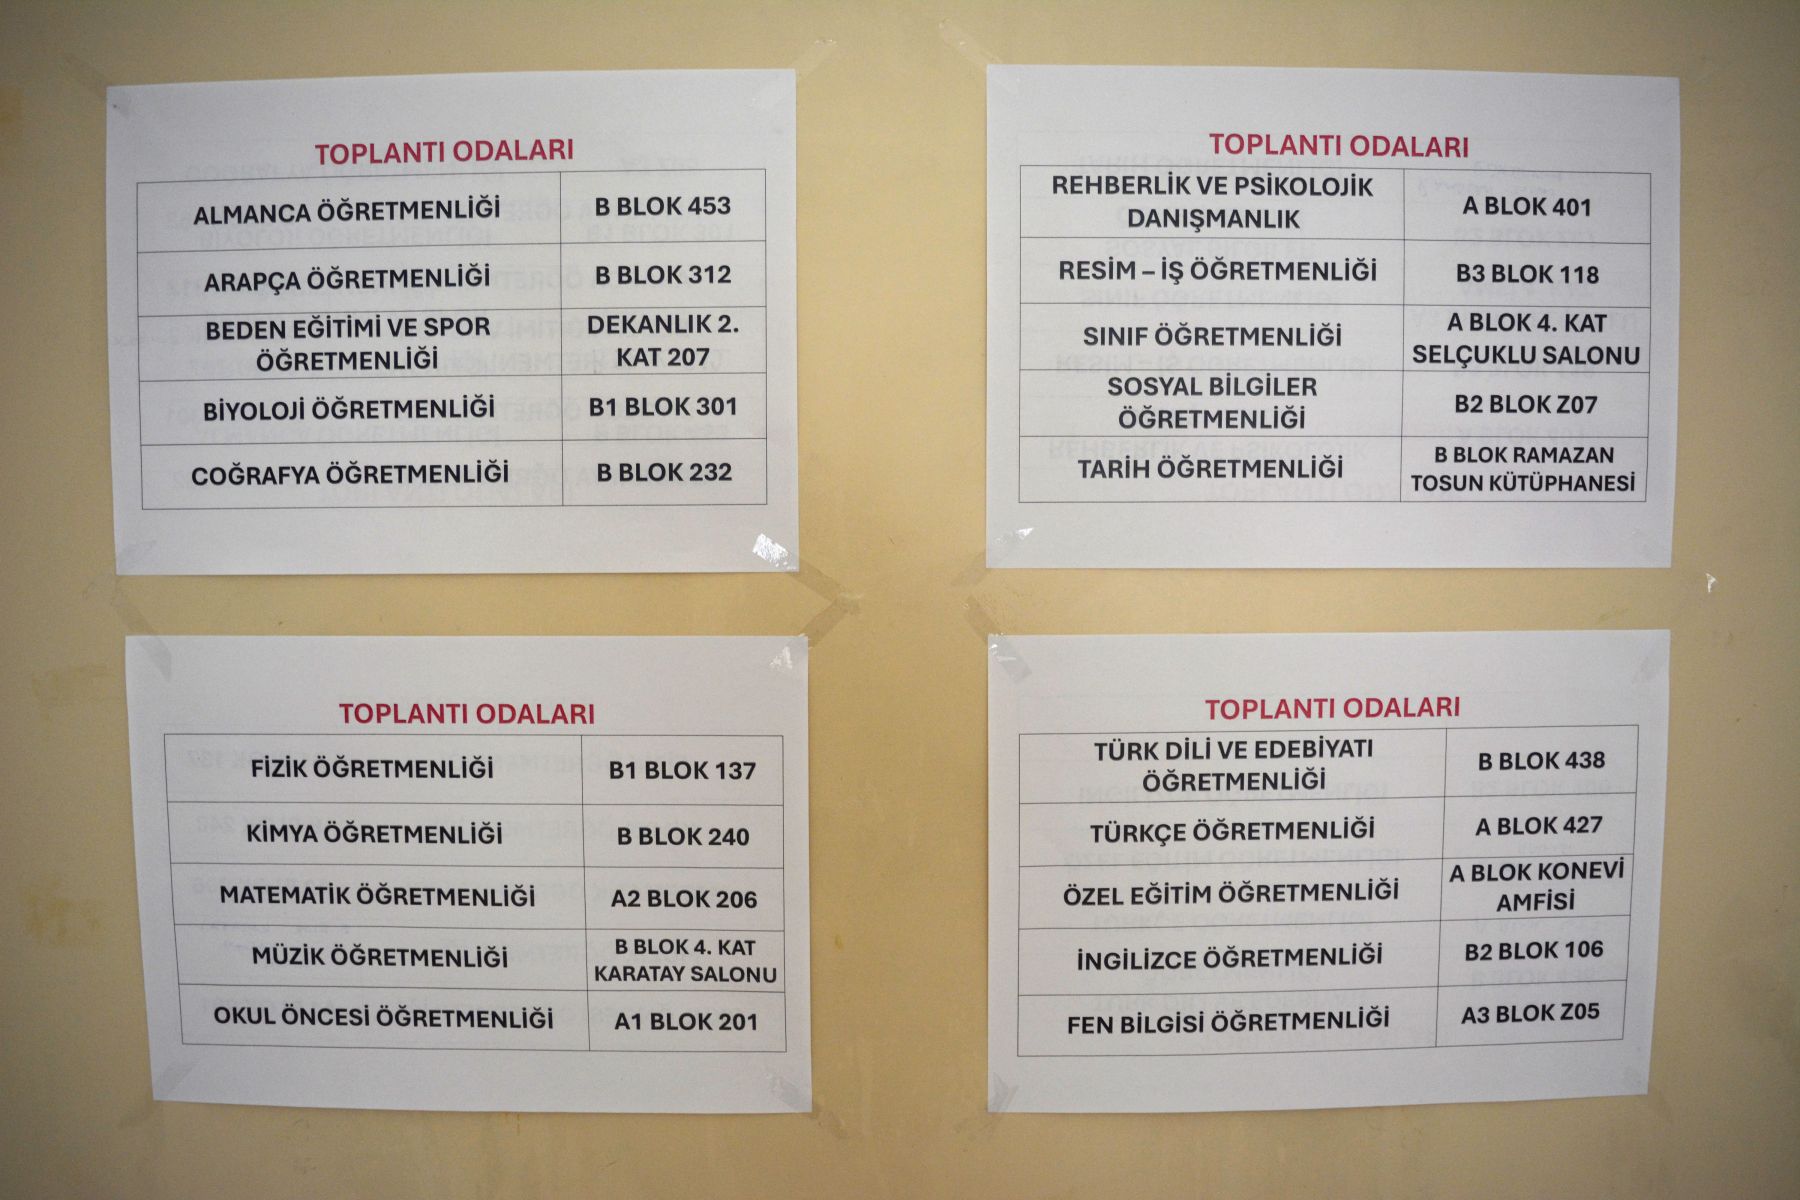 TOPLANTI ODALARI
ALMANCA ÖĞRETMENLİĞİ B BLOK 453
ARAPÇA ÖĞRETMENLİĞİ B BLOK 312
BEDEN EĞİTİMİ VE SPOR ÖĞRETMENLİĞİ DEKANLIK 2. KAT 207
BİYOLOJİ ÖĞRETMENLİĞİ B1 BLOK 301
COĞRAFYA ÖĞRETMENLİĞİ B BLOK 232
TOPLANTI ODALARI
REHBERLİK VE PSİKOLOJİK DANIŞMANLIK A BLOK 401
RESİM – İŞ ÖĞRETMENLİĞİ B3 BLOK 118
SINIF ÖĞRETMENLİĞİ A BLOK 4. KAT SELÇUKLU SALONU
SOSYAL BİLGİLER ÖĞRETMENLİĞİ B2 BLOK Z07
TARİH ÖĞRETMENLİĞİ B BLOK RAMAZAN TOSUN KÜTÜPHANESİ
TOPLANTI ODALARI
FİZİK ÖĞRETMENLİĞİ B1 BLOK 137
KİMYA ÖĞRETMENLİĞİ B BLOK 240
MATEMATİK ÖĞRETMENLİĞİ A2 BLOK 206
MÜZİK ÖĞRETMENLİĞİ B BLOK 4. KAT KARATAY SALONU
OKUL ÖNCESİ ÖĞRETMENLİĞİ A1 BLOK 201
TOPLANTI ODALARI
TÜRK DİLİ VE EDEBİYATI ÖĞRETMENLİĞİ B BLOK 438
TÜRKÇE ÖĞRETMENLİĞİ A BLOK 427
ÖZEL EĞİTİM ÖĞRETMENLİĞİ A BLOK KONEVİ AMFİSİ
İNGİLİZCE ÖĞRETMENLİĞİ B2 BLOK 106
FEN BİLGİSİ ÖĞRETMENLİĞİ A3 BLOK Z05